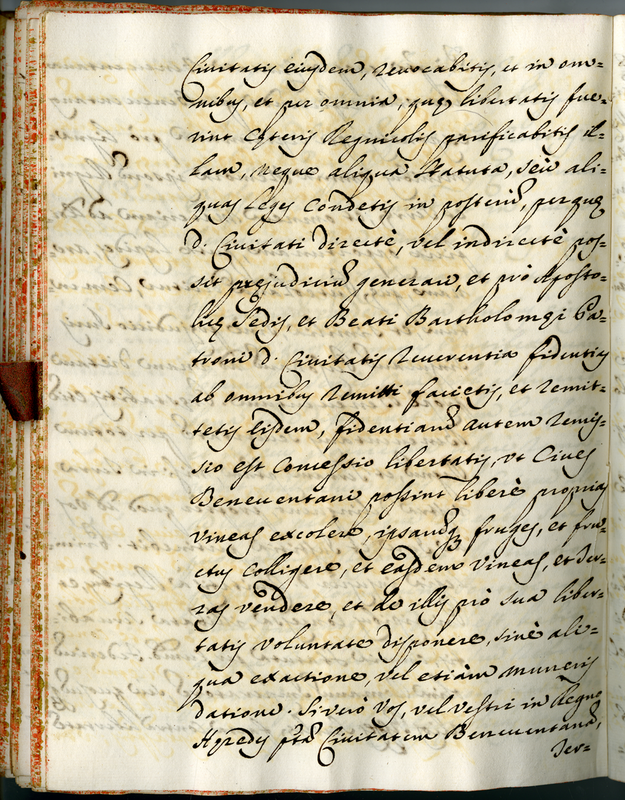 Civitatis eiusdem, revocabitis, et in om=
nibus, et per omnia, quę libertatis fue=
rint Cęteris Regnicolis parificabitis il=
lam, neque aliqua statuta, seù ali=
quas Leges Condetis in posterũ, per quę
d. Civitati directè, vel indirectè pos=
sit pręjudiciũ generari, et prò Aposto=
licę Sedis, et Beati Bartholomęi Pa=
troni d. Civitatis reverentia fidentias
ab omnibus remitti facietis, et remit=
tetis eisdem, fidentiarũ autem remis=
sio est Concessio libertatis, ut Cives
Beneventani possint liberè proprias
vineas excolere, ipsarũq; fruges, et fru=
ctus Colligere, et easdem vineas, et Ter=
ras vendere, et de illis prò sua liber=
tatis voluntate disponere, sinè ali=
qua exactione, vel etiàm muneris
datione. Siverò Vos, vel vestri in Regno
Hęredes ptã Civitatem Beneventanã,
Ter=